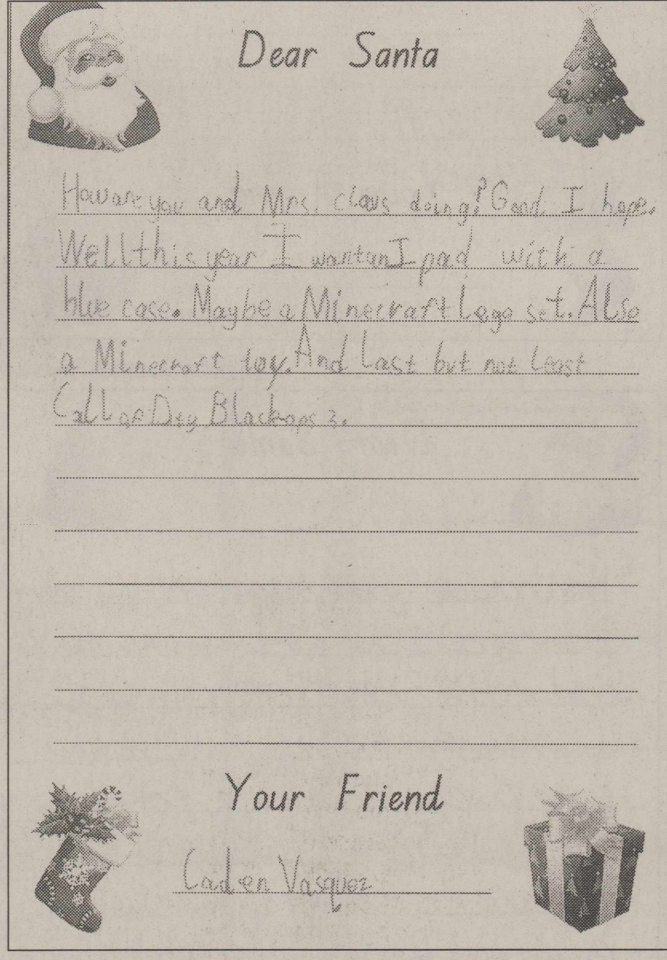 Dear Santa
How are you and Mrs. claus doing? Good I hope.
Well this year I want an I pad with a
blue case. Maybe a Minecraft Lego set. Also
a Minecraft toy. And Last but not least
Call of Dty Blackops 3.
Your Friend
Caden Vasquez